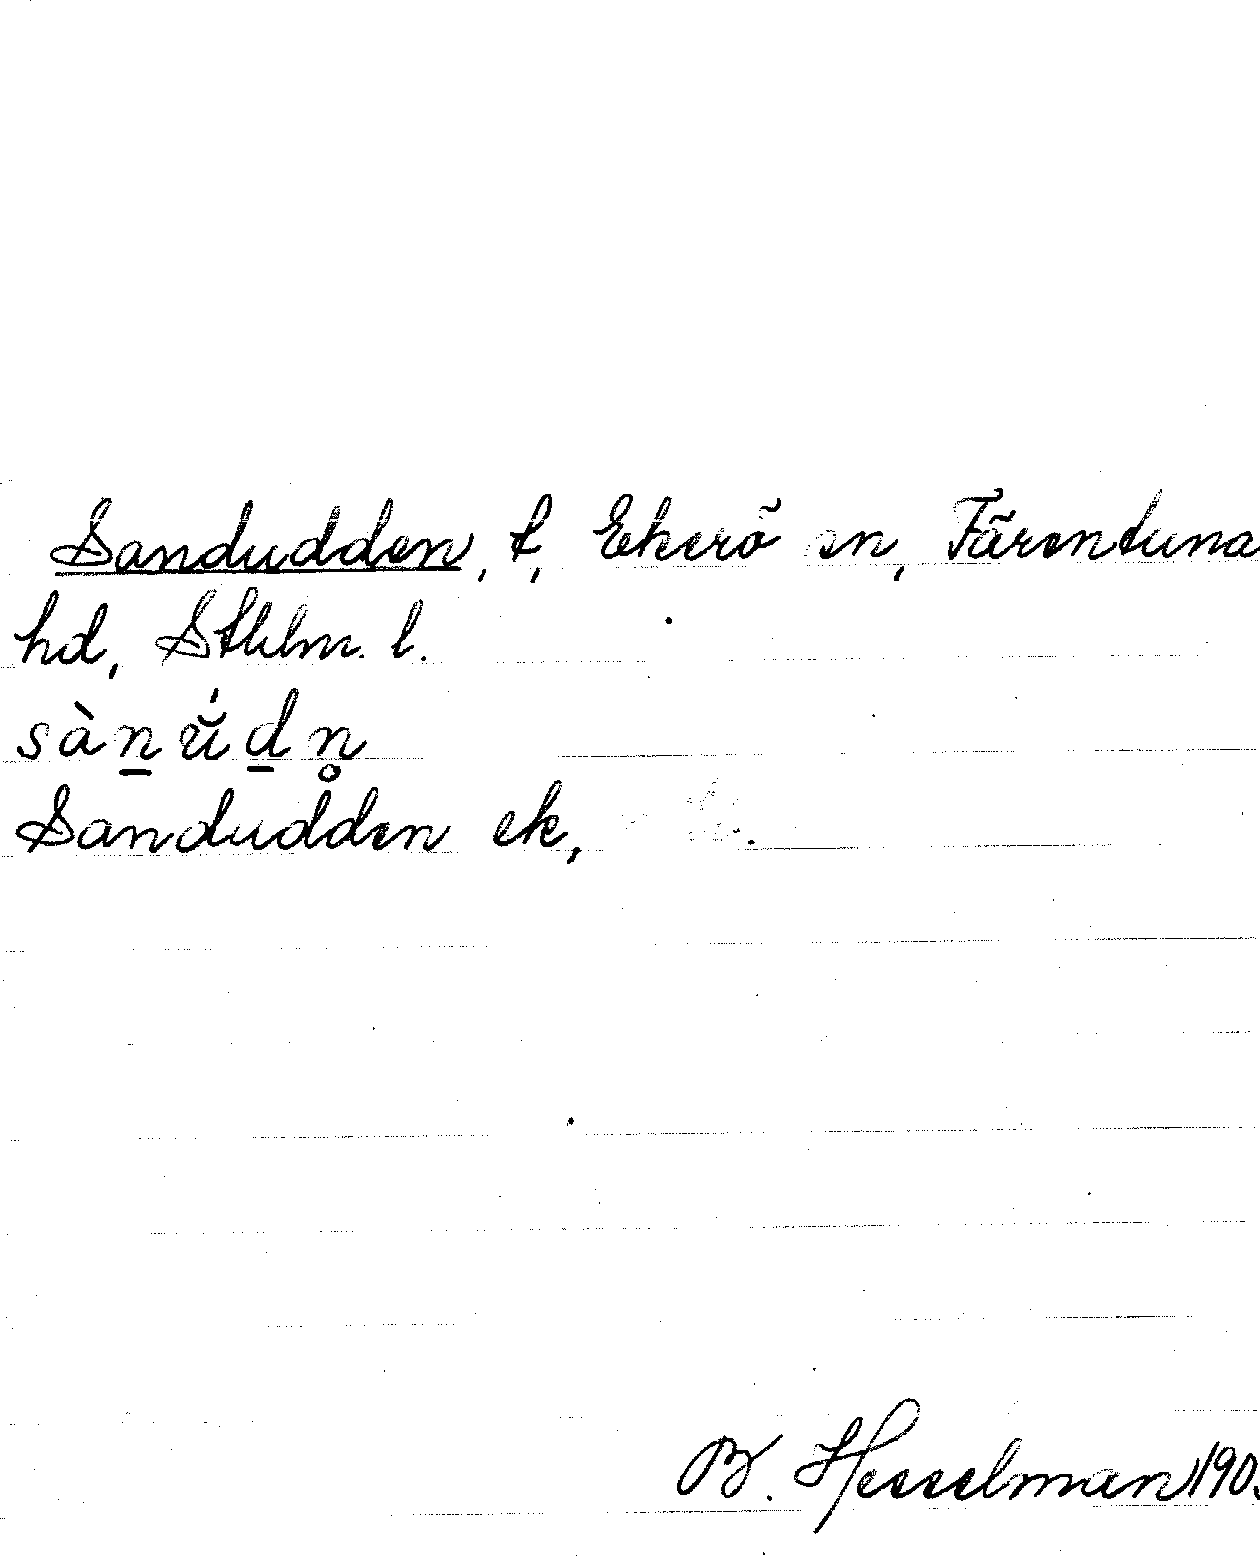 Sandudden, t, Ekerö sn, Färentuna
hd, Sthlm. l.
sàn̲ŭ́d̲n̥
Sandudden ek,
B. Hesselman 190